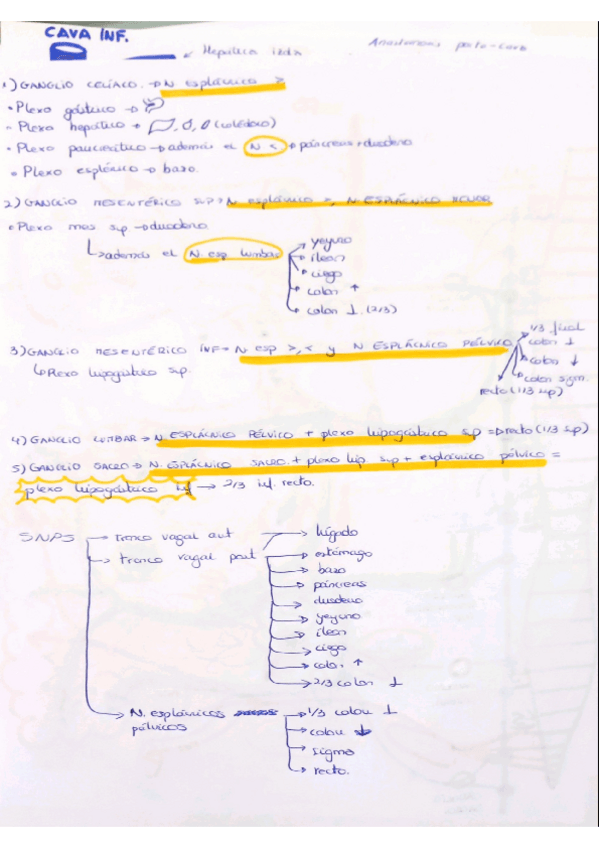 CAVA INF.
Hepática izda
Anastomosis porto-cava
1) GANGLIO CELÍACO → N esplácnico >
• Plexo gástrico →
• Plexo hepático → , , (colédoco)
• Plexo pancreático → además el N < → páncreas + duodeno
• Plexo esplénico → bazo.
2) GANGLIO MESENTÉRICO SUP → N esplácnico >, N. ESPLÁCNICO MENOR
• Plexo mes sup → duodeno
↳ además el N. esp. lumbar
yeyuno
íleon
ciego
colon ↑
colon ⊥ (2/3)
3) GANGLIO MESENTÉRICO INF → N esp >, < y N ESPLÁCNICO PÉLVICO
↳ Plexo hipogástrico sup.
1/3 final colon ⊥
colon ↓
colon sigm.
recto (1/3 sup)
4) GANGLIO LUMBAR → N. ESPLÁCNICO PÉLVICO + plexo hipogástrico sup ⇒ recto (1/3 sup)
5) GANGLIO SACRO → N. ESPLÁCNICO SACRO + plexo hip sup + esplácnico pélvico =
plexo hipogástrico inf → 2/3 inf. recto.
SNPS
→ tronco vagal ant
→ tronco vagal post
→ hígado
→ estómago
→ bazo
→ páncreas
→ duodeno
→ yeyuno
→ íleon
→ ciego
→ colon ↑
→ 2/3 colon ⊥
→ N. esplácnicos pélvicos
→ 1/3 colon ⊥
→ colon ↓
→ sigma
→ recto.